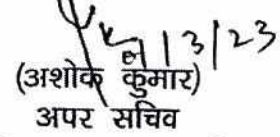 13/23
(अशोक कुमार)
अपर सचिव